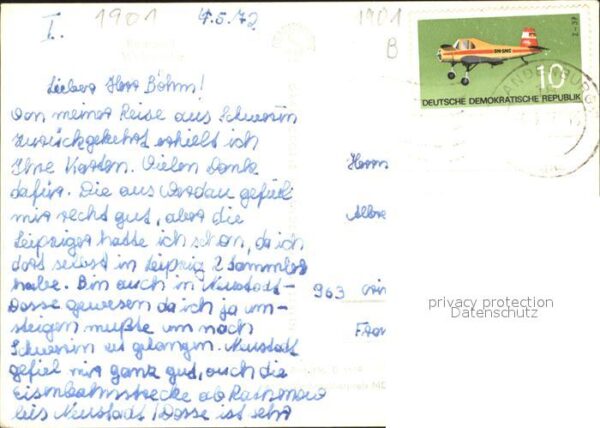 I. 1901 7.5.72 1901
B
Z-37
DM-SMC
10
DEUTSCHE DEMOKRATISCHE REPUBLIK
Lieber Herr Böhm!
Von meiner Reise aus Schwerin
zurückgekehrt erhielt ich
Ihre Karten. Vielen Dank
dafür. Die aus Werdau gefiel
mir recht gut, aber die
Leipziger hatte ich schon, da ich
dort selbst in Leipzig 2 Sammler
habe. Bin auch in Neustadt-
Dosse gewesen da ich ja um-
steigen mußte um nach
Schwerin zu gelangen. Neustadt
gefiel mir ganz gut, auch die
Eisenbahnstrecke ab Rathenow
bis Neustadt/Dosse ist sehr
Herrn
Albre
963
privacy protection
Datenschutz